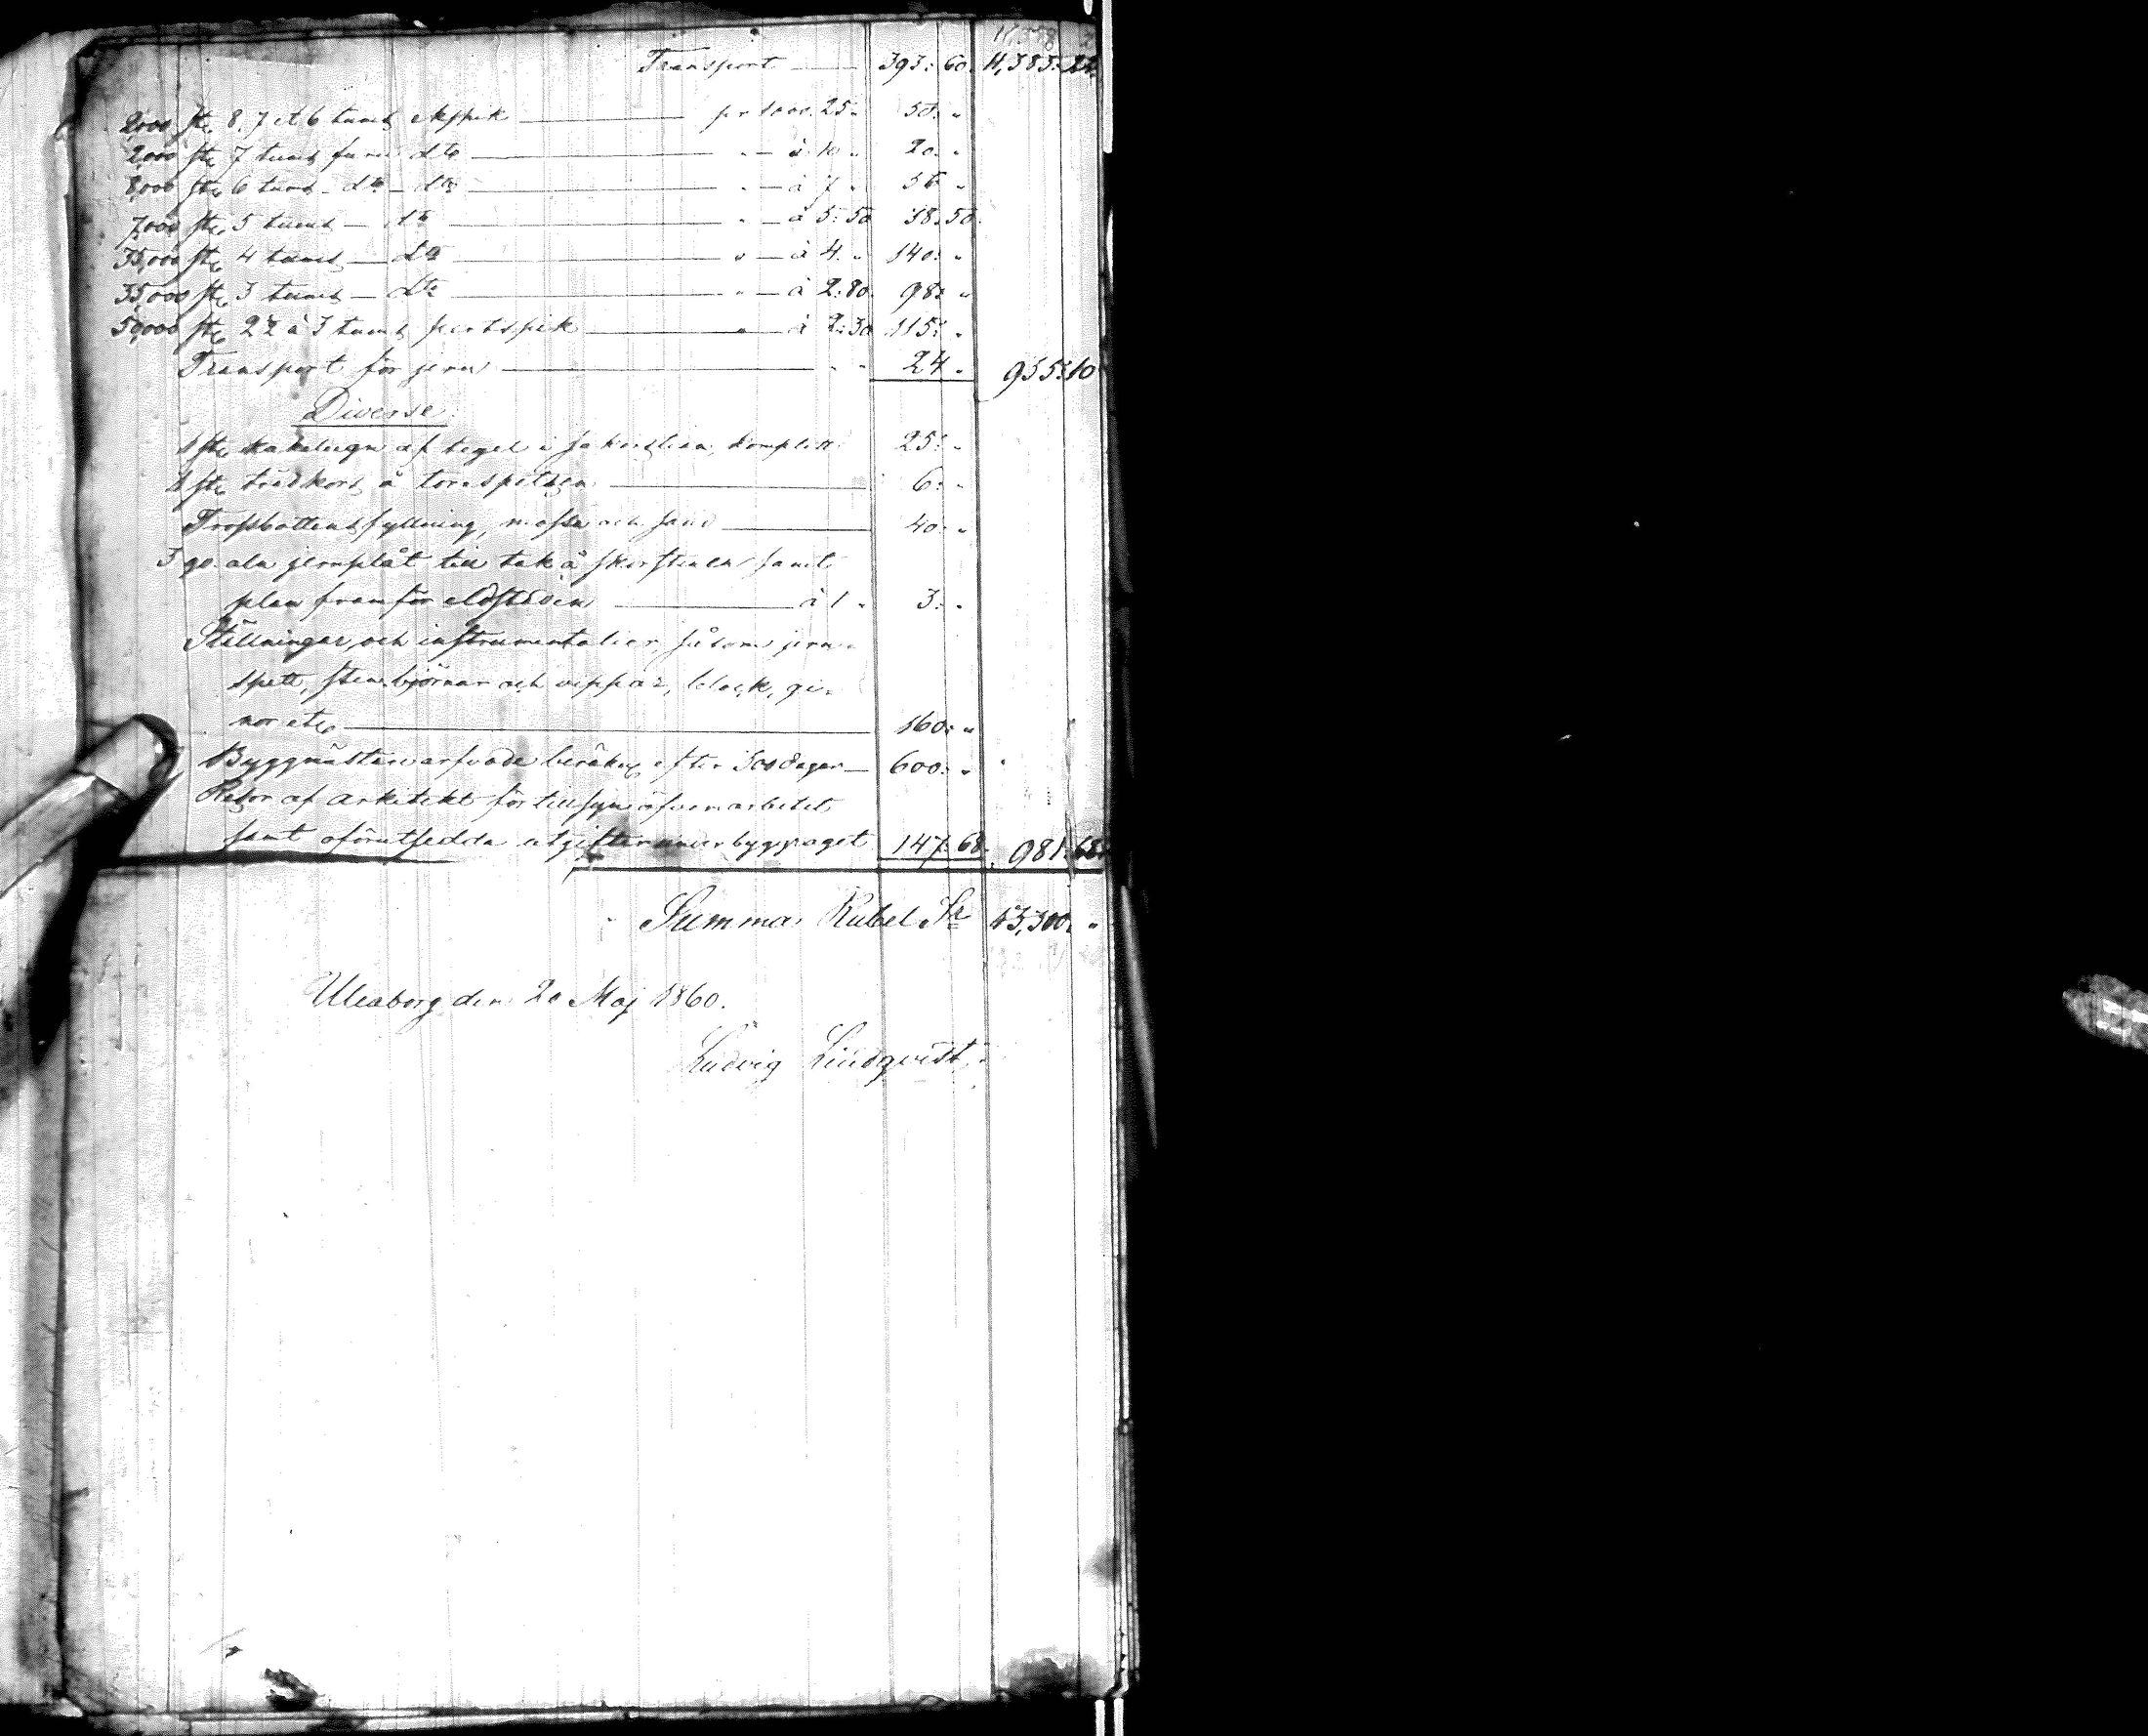 Transport — 393: 60. 11,383: 22.
2,000 st. 8, 7 et 6 tums ekspik — pr 1000. 25 „ 50: „
2,000 st. 7 tums furu dto — „ — à 10 „ 20: „
8,000 st. 6 tums dto dto — „ — à 7 „ 56 „
7,000 st. 5 tums — dto — „ — à 5: 50 38: 50.
35,000 st. 4 tums — dto — „ — à 4. „ 140: „
35,000 st. 3 tums — dto — „ — à 2: 80. 98: „
50,000 st. 2½ à 3 tums pertspik — „ à 2: 30 115: „
Transport för jern — 24 „ 935: 10
Diverse.
1 st. kakelugn af tegel i sakerstian, komplett 25: „
1 st. trädkors å tornspetsen — 6: „
Trossbottensfyllning, mossa och sand — 40: „
3 qv. aln jernplåt till tak å skorstenen samt
plan framför eldstaden — à 1 „ 3: „
Ställningar och instrumentalier, såsom jern-
spett, stenbjörnar och vippor, block, gi-
nor etc — 160: „
Byggmästarearfvode beräkn. efter 300 dagar — 600: „
Resor af arkitekt för tillsyn öfver arbetet
samt oförutsedda utgifter under byggnaget 147: 68. 981: 68.
Summa Rubel Sr 13,300: „
Uleaborg den 20 Maj 1860.
Ludvig Lindqvist